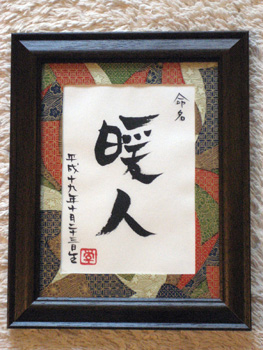 命名
暖人
平成十九年十月二十三日生